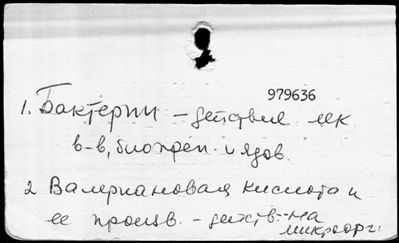 979636
1. Бактерии – действия лек
в-в, биопреп. и ядов.
2 Валериановая кислота и
ее произв. – действ. на
микроорг.